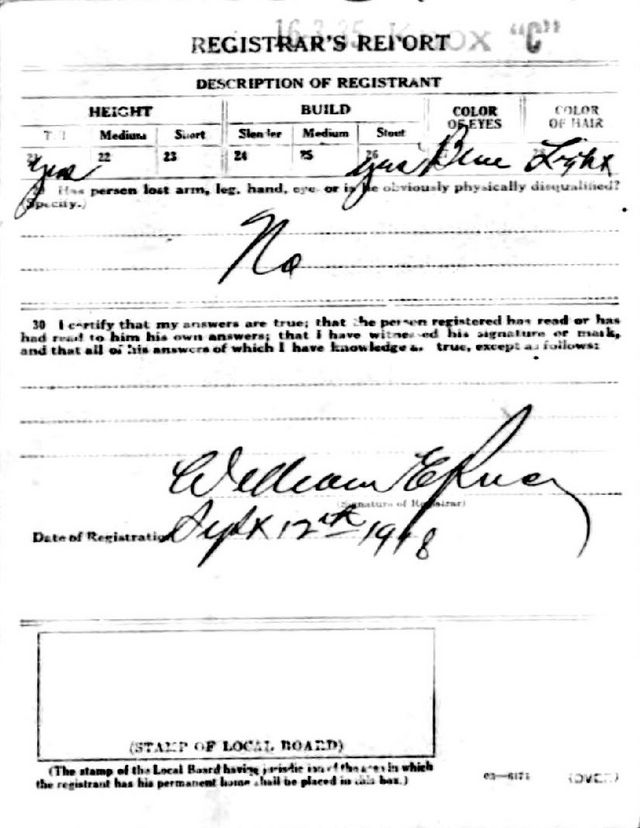 16-3-35 K ox "C"
REGISTRAR'S REPORT
DESCRIPTION OF REGISTRANT
HEIGHT BUILD COLOR OF EYES COLOR OF HAIR
Medium Short Slender Medium Stout
21 22 23 24 25 26
Yes Yes Blue Light
29 Has person lost arm, leg, hand, eye, or is he obviously physically disqualified?
(Specify.)
No
30 I certify that my answers are true; that the person registered has read or has
had read to him his own answers; that I have witnessed his signature or mark,
and that all of his answers of which I have knowledge are true, except as follows:
William E
(Signature of Registrar)
Date of Registration Sept 12th 1918
(STAMP OF LOCAL BOARD)
(The stamp of the Local Board having jurisdiction of the area in which
the registrant has his permanent home shall be placed in this box.)
03—6171 (OVER)